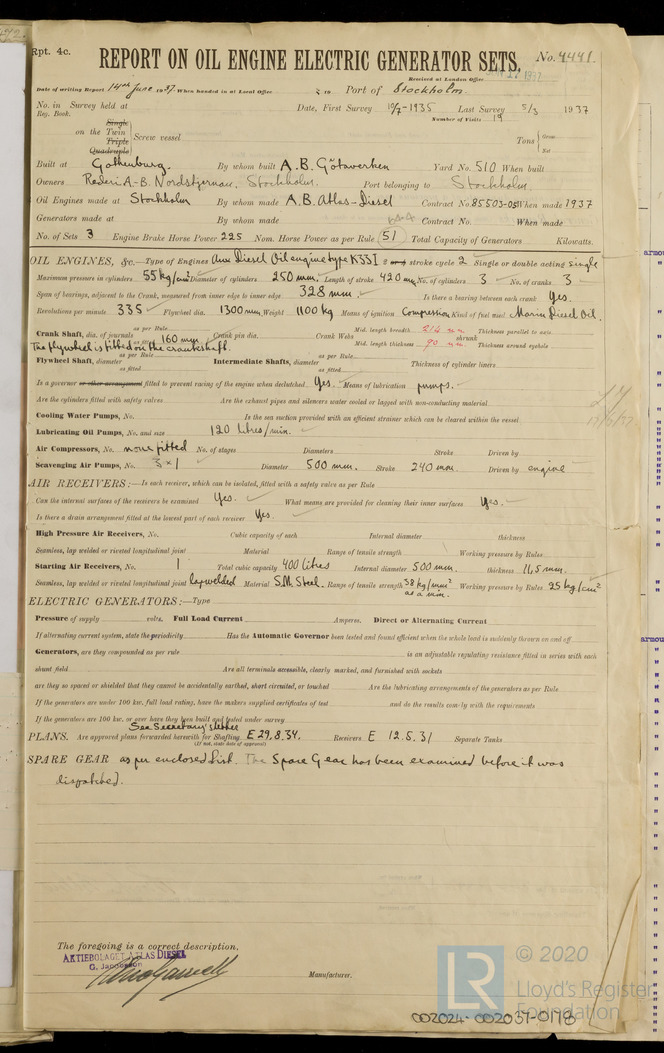 Rpt. 4c.
REPORT ON OIL ENGINE ELECTRIC GENERATOR SETS. No. 4441.
Received at London Office
Date of writing Report 14th June 1937 When handed in at Local Office 19 Port of Stockholm.
No. in Survey held at Date, First Survey 10/7-1935 Last Survey 5/3 1937
Reg. Book. Number of Visits 19
Single
on the Twin
Triple
Quadruple
Screw vessel
Tons Gross
Net
Built at Gothenburg. By whom built A.B. Götaverken Yard No. 510 When built
Owners Rederi A-B. Nordstjernan, Stockholm. Port belonging to Stockholm.
Oil Engines made at Stockholm By whom made A.B. Atlas-Diesel Contract No. 85503-05 When made 1937
Generators made at By whom made Contract No. When made
No. of Sets 3 Engine Brake Horse Power 225 Nom. Horse Power as per Rule 51 Total Capacity of Generators Kilowatts.
OIL ENGINES, &c.—Type of Engines Aux Diesel Oil engine type K33I 2 or 4 stroke cycle 2 Single or double acting Single
Maximum pressure in cylinders 55 kg/cm² Diameter of cylinders 250 mm. Length of stroke 420 mm No. of cylinders 3 No. of cranks 3
Span of bearings, adjacent to the Crank, measured from inner edge to inner edge 328 mm. Is there a bearing between each crank Yes.
Revolutions per minute 335 Flywheel dia. 1300 mm. Weight 1100 kg Means of ignition Compression Kind of fuel used Marin Diesel Oil.
Crank Shaft, dia. of journals as per Rule as fitted 160 mm Crank pin dia. Crank Webs Mid. length breadth 214 mm. Thickness parallel to axis
Mid. length thickness 90 mm. shrunk Thickness around eyehole
The flywheel is fitted on the crankshaft.
Flywheel Shaft, diameter as per Rule as fitted Intermediate Shafts, diameter as per Rule as fitted Thickness of cylinder liners
Is a governor or other arrangement fitted to prevent racing of the engine when declutched Yes. Means of lubrication pumps.
Are the cylinders fitted with safety valves Are the exhaust pipes and silencers water cooled or lagged with non-conducting material
Cooling Water Pumps, No. Is the sea suction provided with an efficient strainer which can be cleared within the vessel
Lubricating Oil Pumps, No. and size 120 litres/min.
Air Compressors, No. none fitted No. of stages Diameters Stroke Driven by
Scavenging Air Pumps, No. 3 × 1 Diameter 500 mm. Stroke 240 mm. Driven by engine
AIR RECEIVERS:—Is each receiver, which can be isolated, fitted with a safety valve as per Rule
Can the internal surfaces of the receivers be examined Yes. What means are provided for cleaning their inner surfaces Yes.
Is there a drain arrangement fitted at the lowest part of each receiver Yes.
High Pressure Air Receivers, No. Cubic capacity of each Internal diameter thickness
Seamless, lap welded or riveted longitudinal joint Material Range of tensile strength Working pressure by Rules
Starting Air Receivers, No. 1 Total cubic capacity 400 litres Internal diameter 500 mm. thickness 11,5 mm.
Seamless, lap welded or riveted longitudinal joint lapwelded Material S.M. Steel. Range of tensile strength 38 kg/mm² as a min. Working pressure by Rules 25 kg/cm²
ELECTRIC GENERATORS:—Type
Pressure of supply volts. Full Load Current Amperes. Direct or Alternating Current
If alternating current system, state the periodicity Has the Automatic Governor been tested and found efficient when the whole load is suddenly thrown on and off
Generators, are they compounded as per rule is an adjustable regulating resistance fitted in series with each
shunt field Are all terminals accessible, clearly marked, and furnished with sockets
are they so spaced or shielded that they cannot be accidentally earthed, short circuited, or touched Are the lubricating arrangements of the generators as per Rule
If the generators are under 100 kw. full load rating, have the makers supplied certificates of test and do the results comply with the requirements
If the generators are 100 kw. or over have they been built and tested under survey
See Secretary's letter
PLANS. Are approved plans forwarded herewith for Shafting E 29.8.34. Receivers E 12.5.31 Separate Tanks
(If not, state date of approval)
SPARE GEAR as per enclosed list. The Spare Gear has been examined before it was
dispatched.
The foregoing is a correct description,
AKTIEBOLAGET ATLAS DIESEL
Manufacturer.
© 2020
LR
Lloyd's Register
Foundation
002024-002037-0178